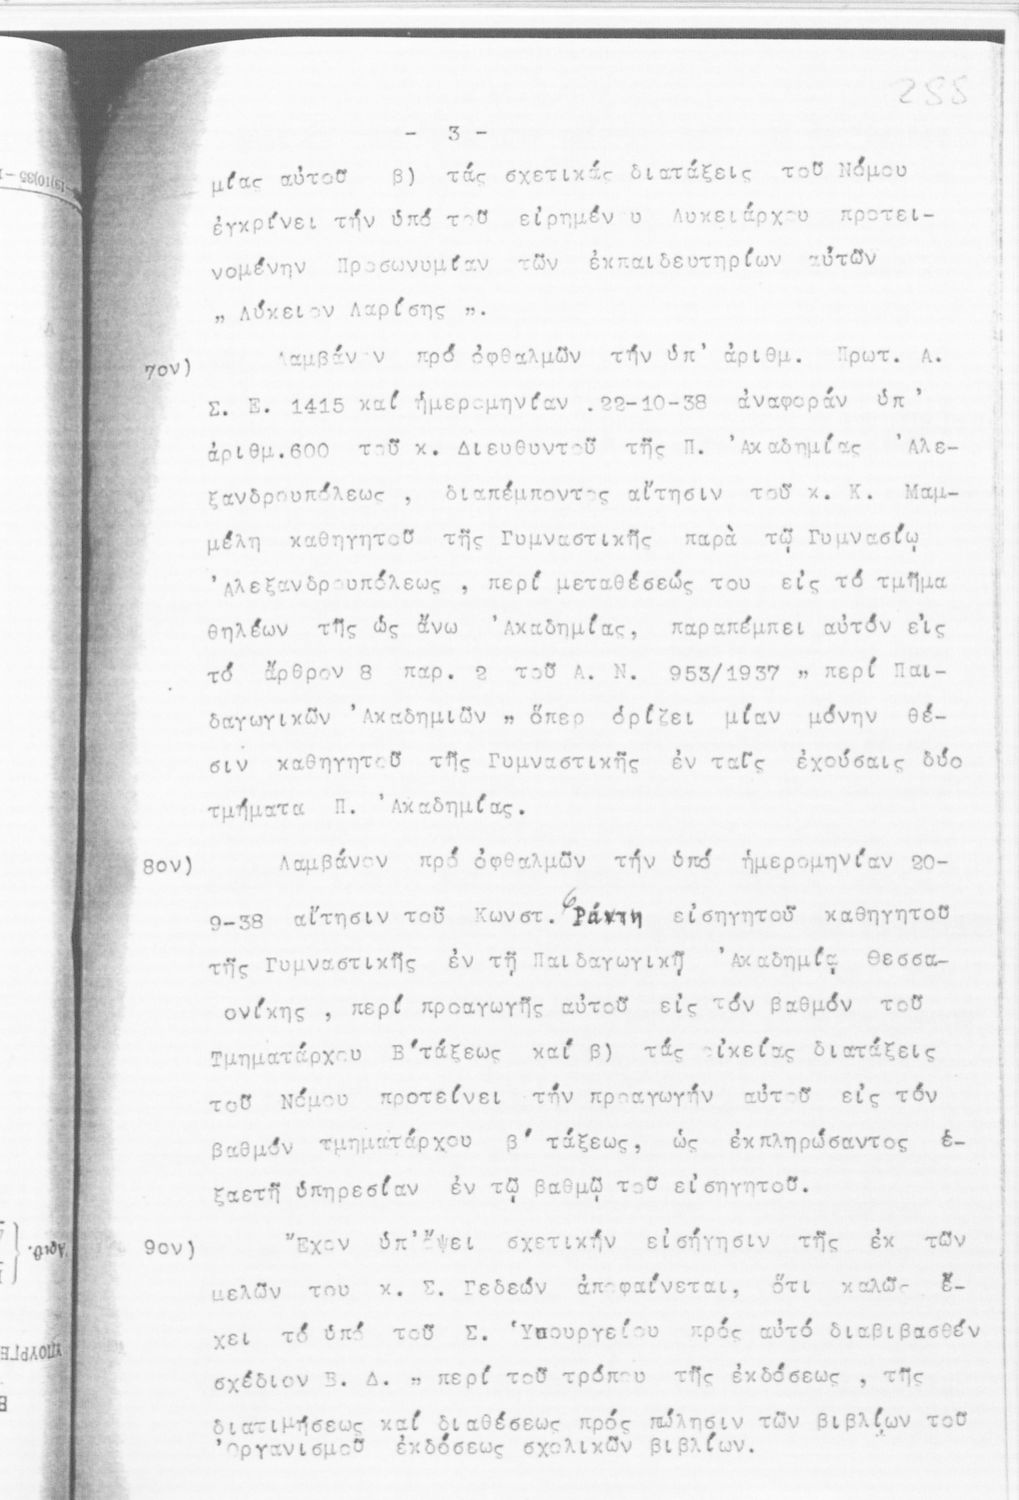 288
- 3 -
μίας αὐτοῦ β) τάς σχετικάς διατάξεις τοῦ Νόμου
ἐγκρίνει τήν ὑπό τοῦ εἰρημένου Λυκειάρχου προτει-
νομένην Προσωνυμίαν τῶν ἐκπαιδευτηρίων αὐτῶν
„ Λύκειον Λαρίσης „.
7ον) Λαμβάνον πρό ὀφθαλμῶν τήν ὑπ' ἀριθμ. Πρωτ. Α.
Σ. Ε. 1415 καί ἡμερομηνίαν .22-10-38 ἀναφοράν ὑπ'
ἀριθμ.600 τοῦ κ. Διευθυντοῦ τῆς Π. Ἀκαδημίας Ἀλε-
ξανδρουπόλεως , διαπέμποντος αἴτησιν τοῦ κ. Κ. Μαμ-
μέλη καθηγητοῦ τῆς Γυμναστικῆς παρὰ τῷ Γυμνασίῳ
Ἀλεξανδρουπόλεως , περί μεταθέσεώς του εἰς τό τμῆμα
θηλέων τῆς ὡς ἄνω Ἀκαδημίας, παραπέμπει αὐτόν εἰς
τό ἄρθρον 8 παρ. 2 τοῦ Α. Ν. 953/1937 „ περί Παι-
δαγωγικῶν Ἀκαδημιῶν „ ὅπερ ὁρίζει μίαν μόνην θέ-
σιν καθηγητοῦ τῆς Γυμναστικῆς ἐν ταῖς ἐχούσαις δύο
τμήματα Π. Ἀκαδημίας.
8ον) Λαμβάνον πρό ὀφθαλμῶν τήν ὑπό ἡμερομηνίαν 20-
9-38 αἴτησιν τοῦ Κωνστ. Ράκτη εἰσηγητοῦ καθηγητοῦ
τῆς Γυμναστικῆς ἐν τῇ Παιδαγωγικῇ Ἀκαδημίᾳ Θεσσα-
ονίκης , περί προαγωγῆς αὐτοῦ εἰς τόν βαθμόν τοῦ
Τμηματάρχου Β΄τάξεως καί β) τάς οἰκείας διατάξεις
τοῦ Νόμου προτείνει τήν προαγωγήν αὐτοῦ εἰς τόν
βαθμόν τμηματάρχου β΄ τάξεως, ὡς ἐκπληρώσαντος ἑ-
ξαετῆ ὑπηρεσίαν ἐν τῷ βαθμῷ τοῦ εἰσηγητοῦ.
9ον) Ἔχον ὑπ'ὄψει σχετικήν εἰσήγησιν τῆς ἐκ τῶν
μελῶν του κ. Σ. Γεδεών ἀποφαίνεται, ὅτι καλῶς ἔ-
χει τό ὑπό τοῦ Σ. Ὑπουργείου πρός αὐτό διαβιβασθέν
σχέδιον Β. Δ. „ περί τοῦ τρόπου τῆς ἐκδόσεως , τῆς
διατιμήσεως καί διαθέσεως πρός πώλησιν τῶν βιβλίων τοῦ
Ὀργανισμοῦ ἐκδόσεως σχολικῶν βιβλίων.